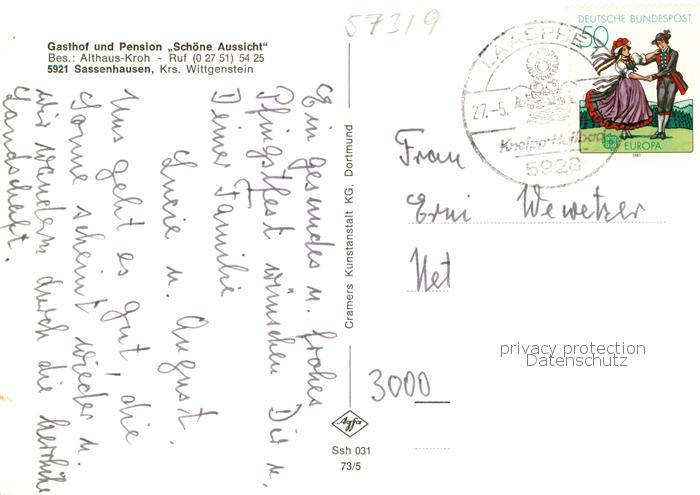 57319
Gasthof und Pension „Schöne Aussicht"
Bes.: Althaus-Kroh - Ruf (0 27 51) 54 25
5921 Sassenhausen, Krs. Wittgenstein
Ein gesundes u. frohes
Pfingstfest wünschen Dir u.
Deiner Familie
Lucie u. August.
Uns geht es gut, die
Sonne scheint wieder u.
wir wandern durch die herrliche
Landschaft.
Cramers Kunstanstalt KG, Dortmund
Agfa
Ssh 031
73/5
DEUTSCHE BUNDESPOST
50
EUROPA
1981
LAASPHE
27.-5.
Kneipp-Heilbad
5928
Frau
Erni Wewetzer
3000
privacy protection
Datenschutz